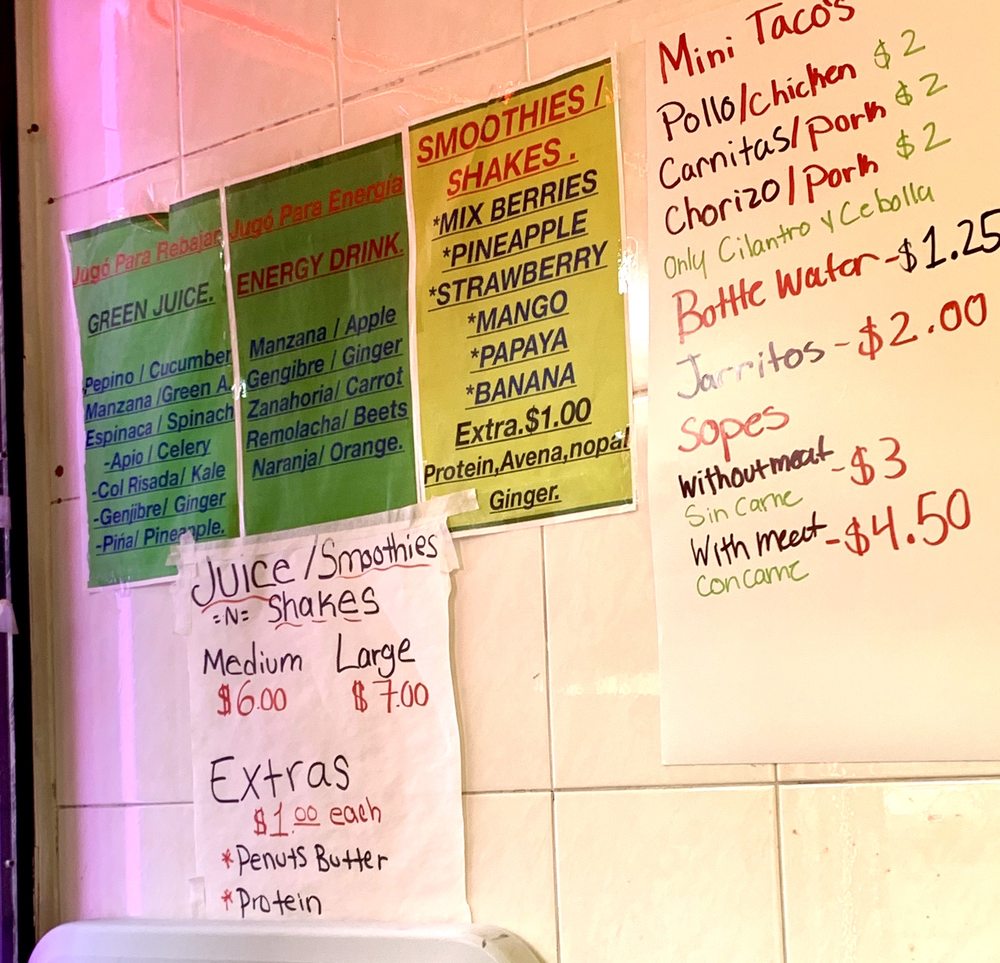 Jugó Para Rebajar
GREEN JUICE.
Pepino / Cucumber
Manzana /Green A.
Espinaca / Spinach
-Apio / Celery
-Col Risada/ Kale
-Genjibre/ Ginger
-Piña/ Pineapple.
Jugó Para Energía
ENERGY DRINK.
Manzana / Apple
Gengibre / Ginger
Zanahoria/ Carrot
Remolacha/ Beets
Naranja/ Orange.
SMOOTHIES /
SHAKES .
*MIX BERRIES
*PINEAPPLE
*STRAWBERRY
*MANGO
*PAPAYA
*BANANA
Extra.$1.00
Protein,Avena,nopal
Ginger.
Juice /Smoothies
=N= Shakes
Medium Large
$6.00 $7.00
Extras
$1.00 each
*Penuts Butter
*Protein
Mini Taco's
Pollo/chicken $2
Carnitas/pork $2
Chorizo/pork $2
Only Cilantro y Cebolla
Bottle water-$1.25
Jarritos-$2.00
Sopes
without meat -$3
Sin carne
With meat-$4.50
con carne